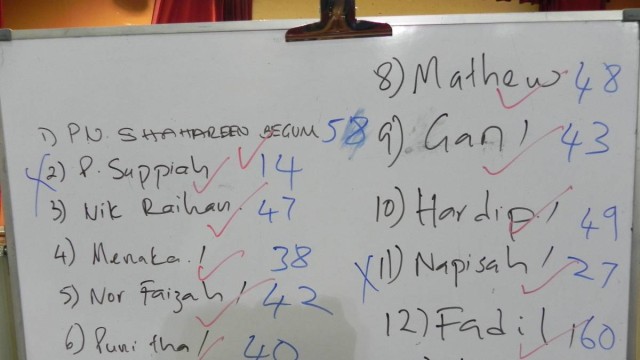 1) PN. SHAHAREEN BEGUM 58
X 2) P. Suppiah 14
3) Nik Raihan. 47
4) Menaka. 38
5) Nor Faizah 42
6) Punitha 40
8) Mathew 48
9) Gan 43
10) Hardip 49
X 11) Napisah 27
12) Fadil 160